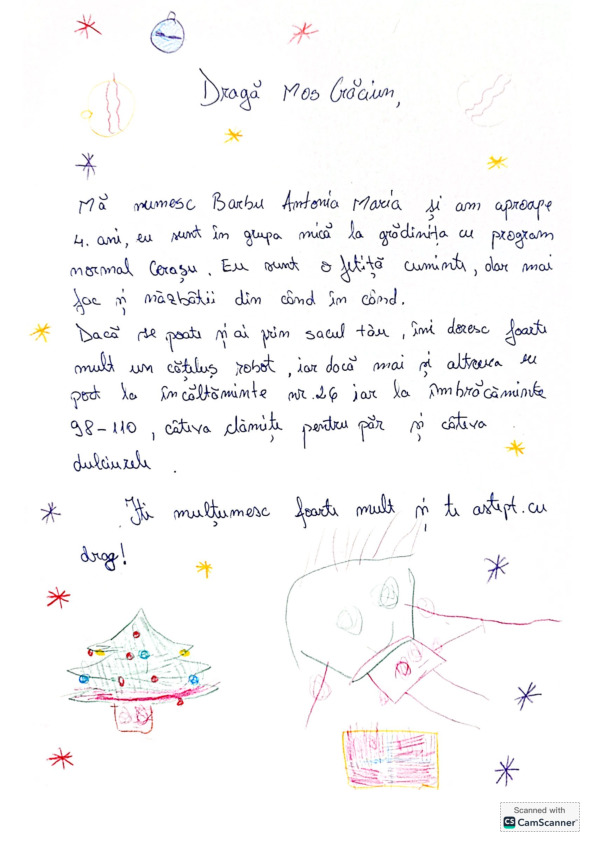 Dragă Mos Crăciun,
Mă numesc Barbu Antonia Maria și am aproape
4. ani, eu sunt în grupa mică la grădinița cu program
normal Cerașu. Eu sunt o fetiță cuminte, dar mai
fac și năzbâtii din când în când.
Dacă se poate și ai prin sacul tău, îmi doresc foarte
mult un cățeluș robot, iar dacă mai și altceva eu
port la încălțăminte nr. 26 iar la îmbrăcăminte
98-110, câteva clămițe pentru păr și câteva
dulciurele.
Iti mulțumesc foarte mult și te astept cu
drag!
Scanned with
CS CamScanner